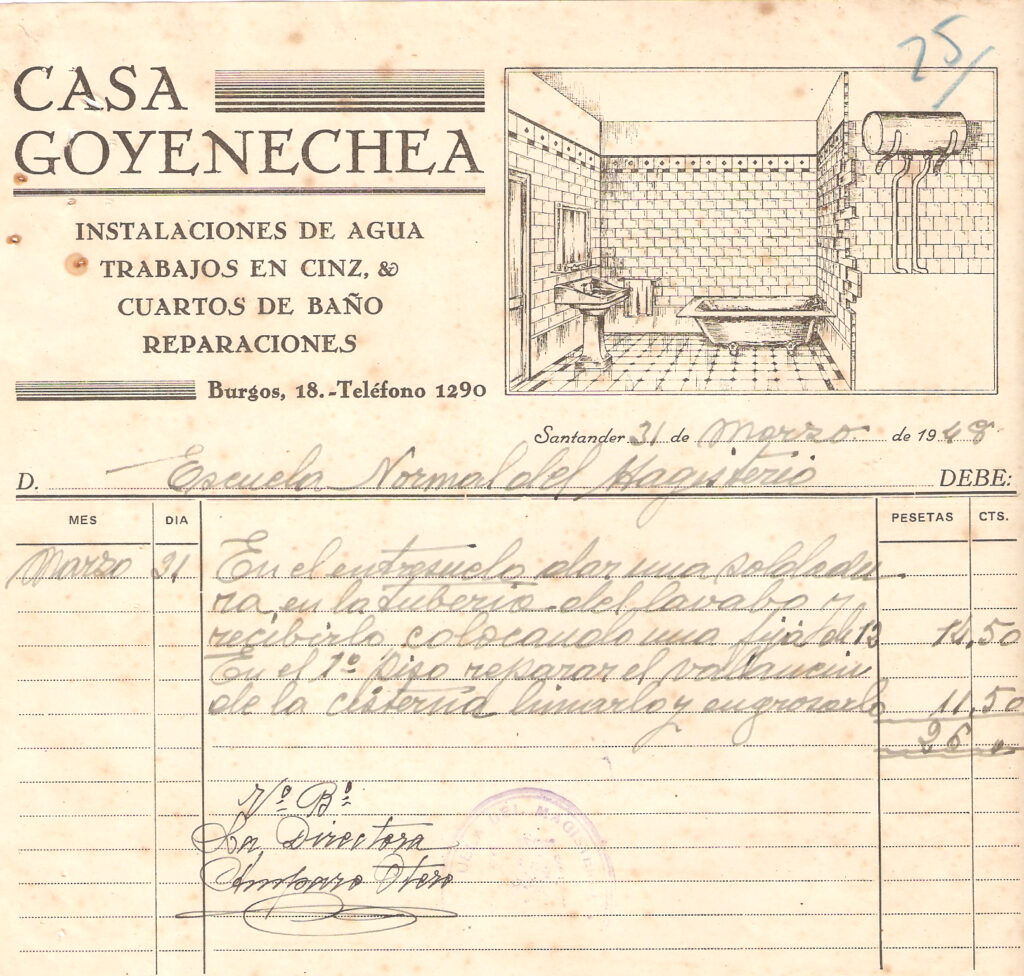 25/
CASA
GOYENECHEA
INSTALACIONES DE AGUA
TRABAJOS EN CINZ, &
CUARTOS DE BAÑO
REPARACIONES
Burgos, 18.-Teléfono 1290
Santander 31 de Marzo de 1948
D. Escuela Normal del Magisterio DEBE:
MES DIA PESETAS CTS.
Marzo 31 En el entresuelo dar una soldadu
ra, en la tuberia del lavabo y
recibirlo colocando una fija de 13 14,50
En el 1º piso reparar el
de la cisterna limarlo y engrosarlo 11,50
26
Vº Bº
La Directora
Amparo Otero
DEL MAGIS